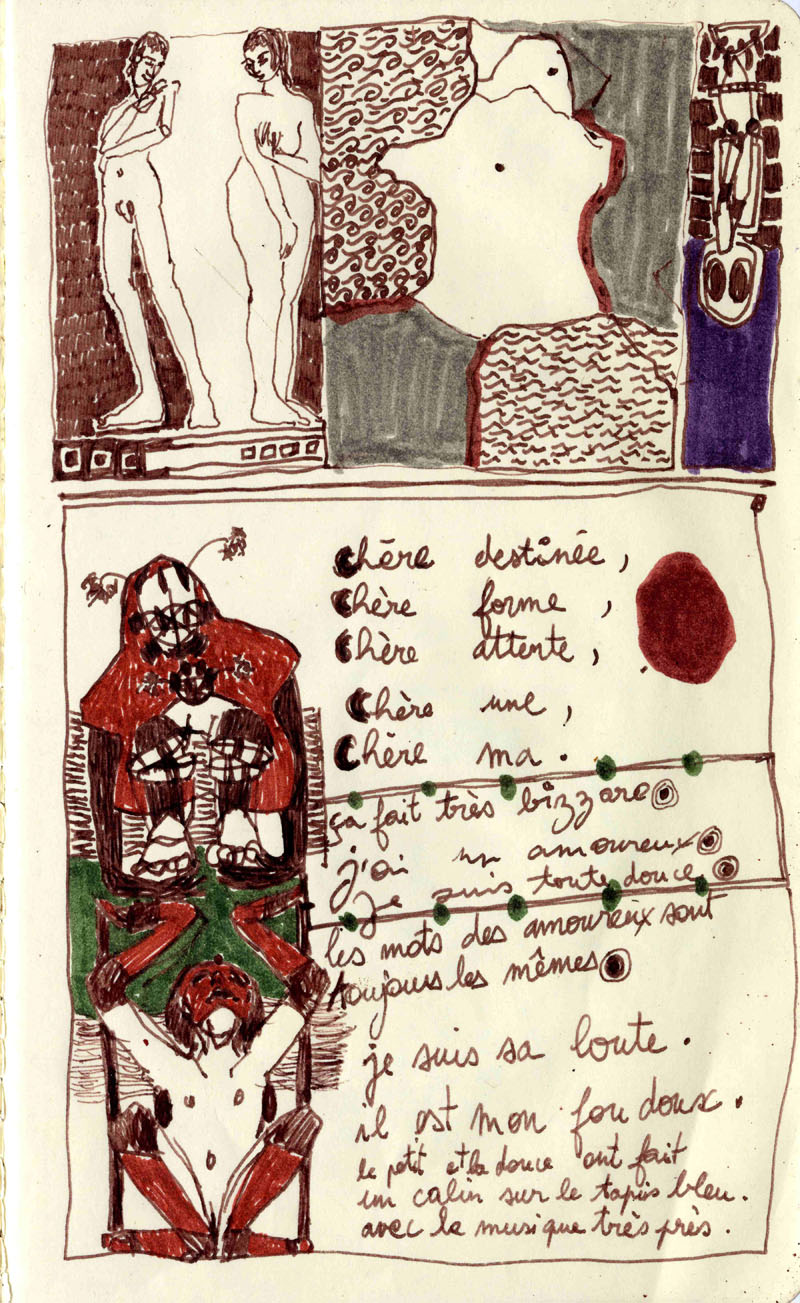 chère destinée,
Chère forme,
Chère attente,
Chère une,
Chère ma.
ça fait très bizzare
j'ai un amoureux
Je suis toute douce
les mots des amoureux sont
toujours les mêmes
je suis sa loute.
il est mon fou doux.
le petit et la douce ont fait
un calin sur le tapis bleu.
avec la musique très près.